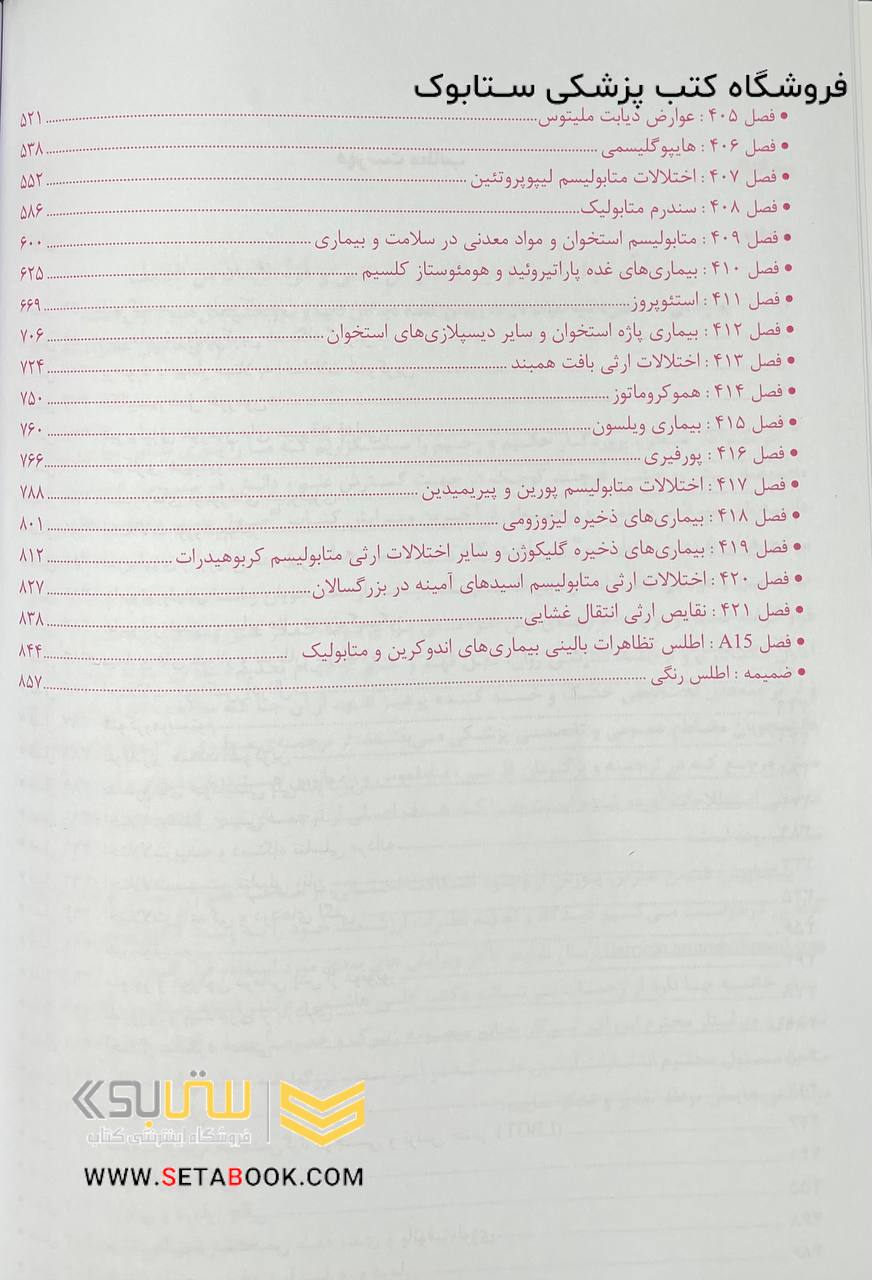 فروشگاه کتب پزشکی ستابوک
• فصل ۴۰۵ : عوارض دیابت ملیتوس ..... ۵۲۱
• فصل ۴۰۶ : هایپوگلیسمی ..... ۵۳۸
• فصل ۴۰۷ : اختلالات متابولیسم لیپوپروتئین ..... ۵۵۲
• فصل ۴۰۸ : سندرم متابولیک ..... ۵۸۶
• فصل ۴۰۹ : متابولیسم استخوان و مواد معدنی در سلامت و بیماری ..... ۶۰۰
• فصل ۴۱۰ : بیماری‌های غده پاراتیروئید و هومئوستاز کلسیم ..... ۶۲۵
• فصل ۴۱۱ : استئوپروز ..... ۶۶۹
• فصل ۴۱۲ : بیماری پاژه استخوان و سایر دیسپلازی‌های استخوان ..... ۷۰۶
• فصل ۴۱۳ : اختلالات ارثی بافت همبند ..... ۷۲۴
• فصل ۴۱۴ : هموکروماتوز ..... ۷۵۰
• فصل ۴۱۵ : بیماری ویلسون ..... ۷۶۰
• فصل ۴۱۶ : پورفیری ..... ۷۶۶
• فصل ۴۱۷ : اختلالات متابولیسم پورین و پیریمیدین ..... ۷۸۸
• فصل ۴۱۸ : بیماری‌های ذخیره لیزوزومی ..... ۸۰۱
• فصل ۴۱۹ : بیماری‌های ذخیره گلیکوژن و سایر اختلالات ارثی متابولیسم کربوهیدرات ..... ۸۱۲
• فصل ۴۲۰ : اختلالات ارثی متابولیسم اسیدهای آمینه در بزرگسالان ..... ۸۲۷
• فصل ۴۲۱ : نقایص ارثی انتقال غشایی ..... ۸۳۸
• فصل A15 : اطلس تظاهرات بالینی بیماری‌های اندوکرین و متابولیک ..... ۸۴۴
• ضمیمه : اطلس رنگی ..... ۸۵۷
ستابوک
فروشگاه اینترنتی کتاب
WWW.SETABOOK.COM